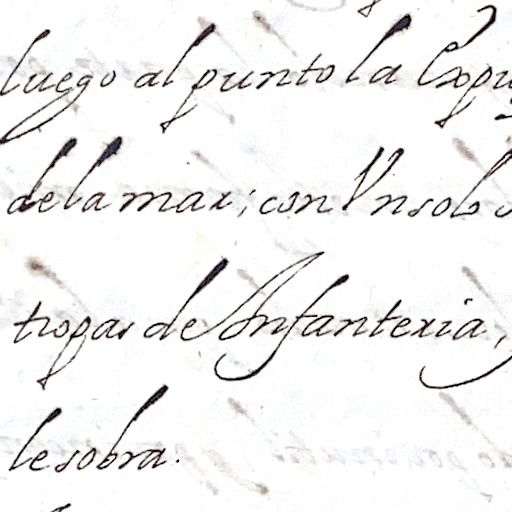 luego al punto la Expu
de la mar; con Vn solo
tropas de Infanteria,
le sobra.